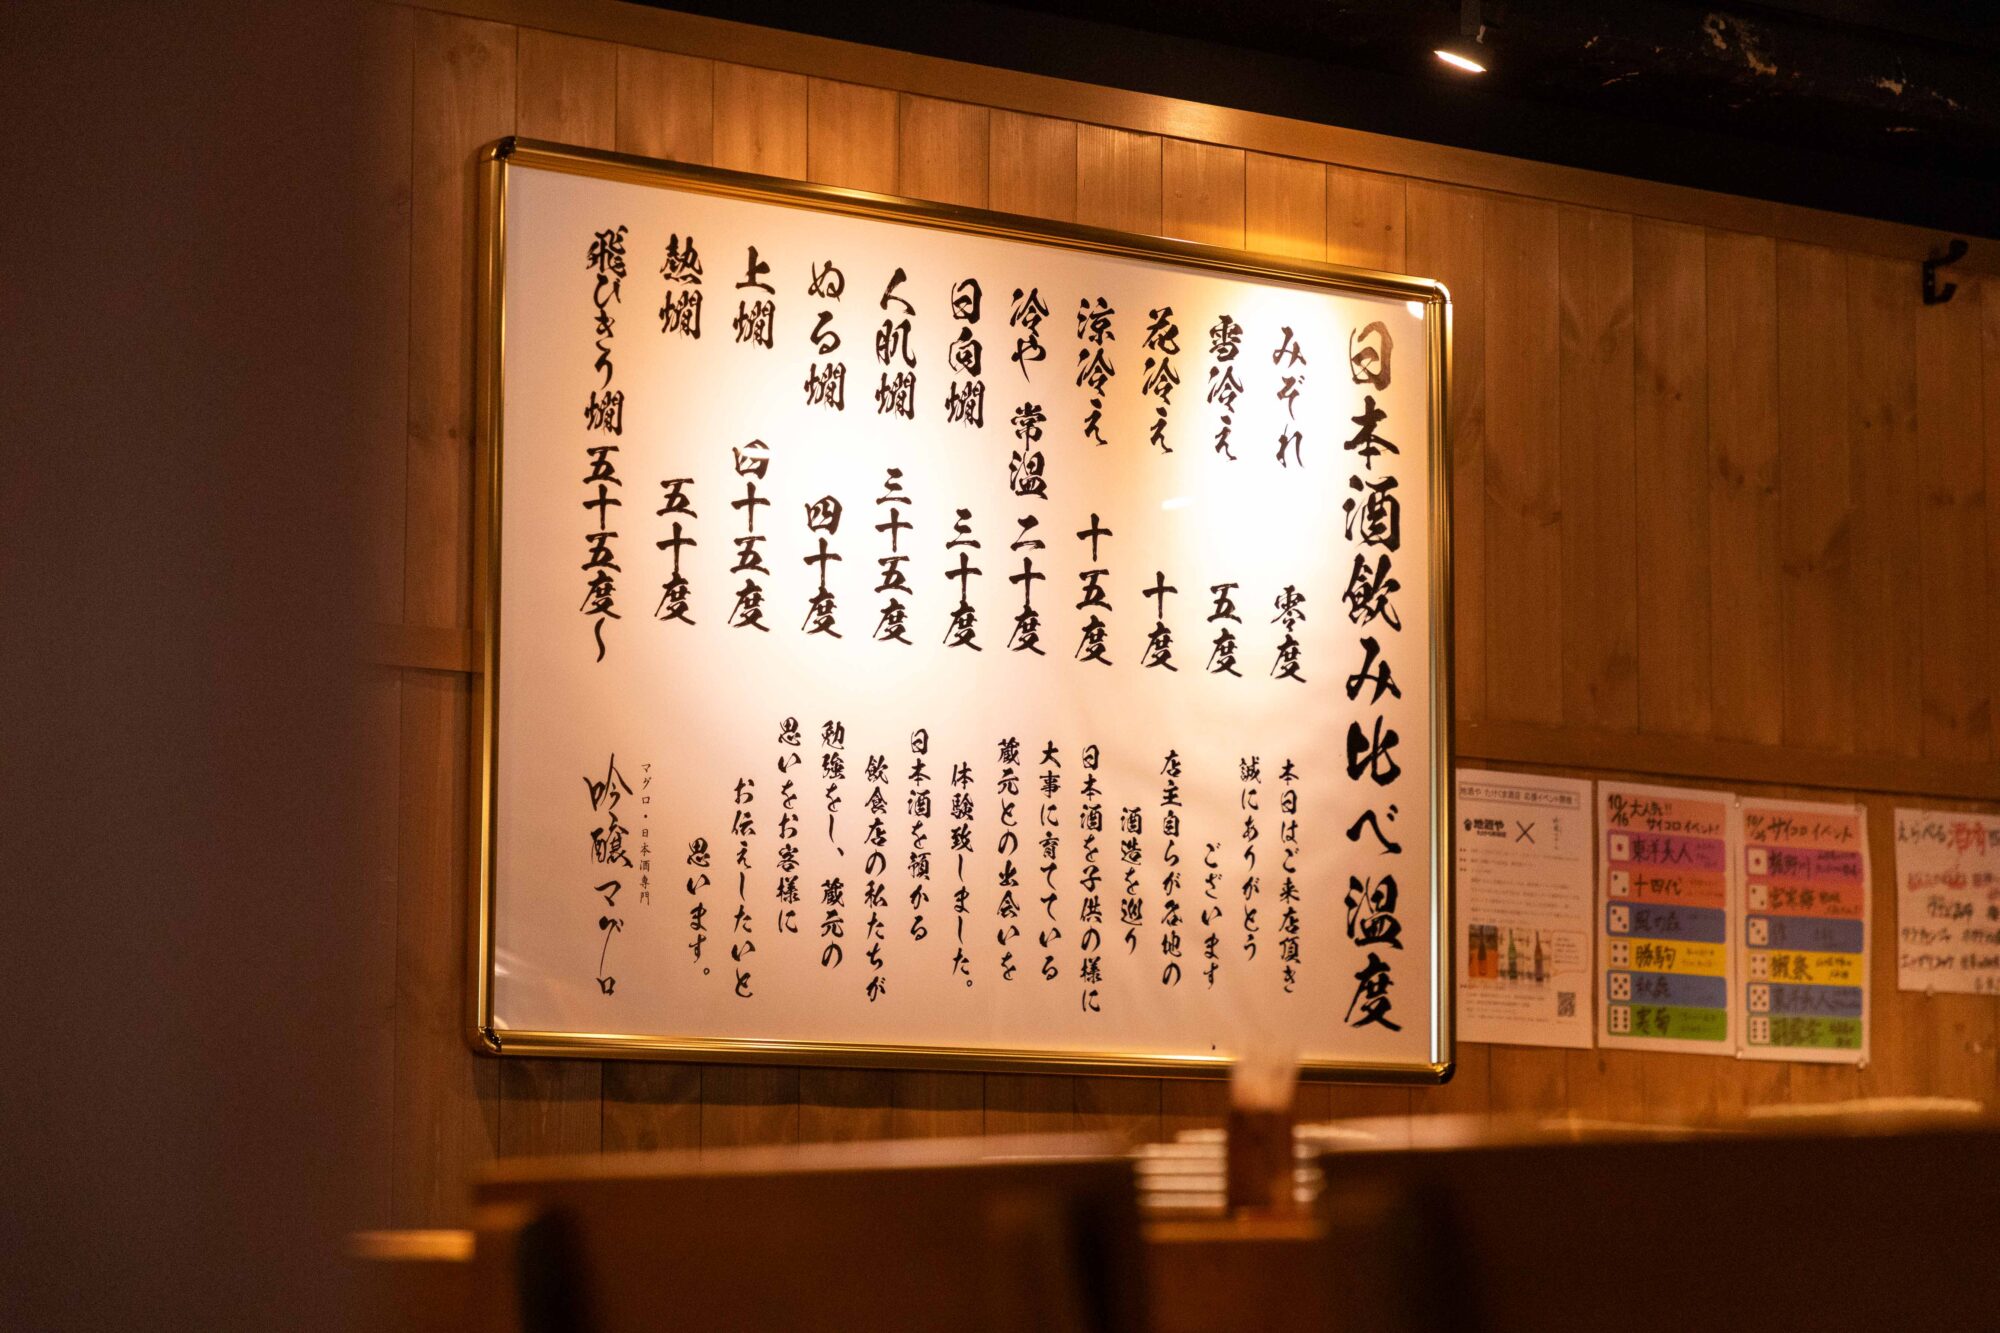 日本酒飲み比べ温度
みぞれ 零度
雪冷え 五度
花冷え 十度
涼冷え 十五度
冷や 常温 二十度
日向燗 三十度
人肌燗 三十五度
ぬる燗 四十度
上燗 四十五度
熱燗 五十度
飛びきり燗 五十五度〜
本日はご来店頂き
誠にありがとう
ございます
店主自らが各地の
酒造を巡り
日本酒を子供の様に
大事に育てている
蔵元との出会いを
体験致しました。
日本酒を預かる
飲食店の私たちが
勉強をし、蔵元の
思いをお客様に
お伝えしたいと
思います。
マグロ・日本酒専門
吟醸マグロ
地酒や たけくま酒店 応援イベント開催
地酒や
10/16 大人気!!
サイコロイベント!
東洋美人
十四代
風の森
勝駒
秋鹿
実菊
サイコロイベント
東洋美人
えらべる酒肴